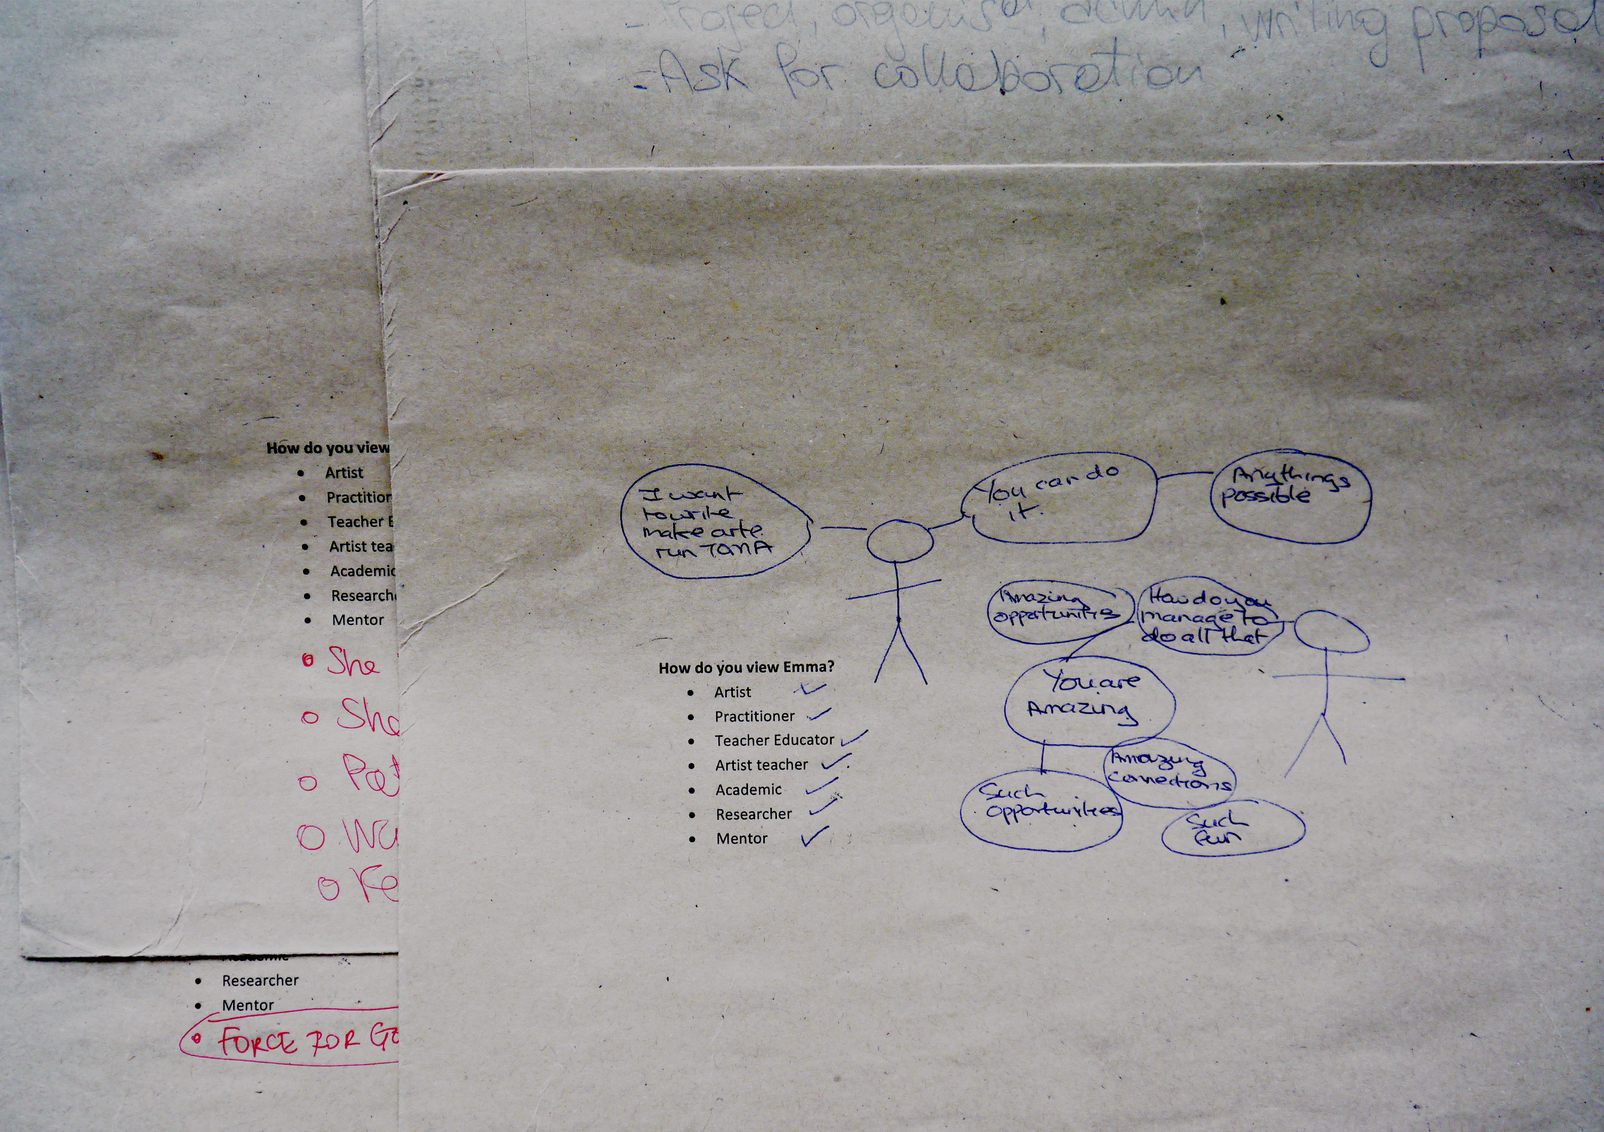 - Project, organiser, admin, writing proposal
- Ask for collaboration
How do you view
• Artist
• Practitioner
• Teacher E
• Artist tea
• Academic
• Research
• Mentor
• She
○ She
○
○
○
Academic
• Researcher
• Mentor
• FORCE FOR GO
I want
to write
make arte
run TAMA
You can do
it.
Anythings
possible
Amazing
opportunities
How do you
manage to
do all that
You are
Amazing
Amazing
connections
Such
opportunities
Such
fun
How do you view Emma?
• Artist ✓
• Practitioner ✓
• Teacher Educator ✓
• Artist teacher ✓
• Academic ✓
• Researcher ✓
• Mentor ✓